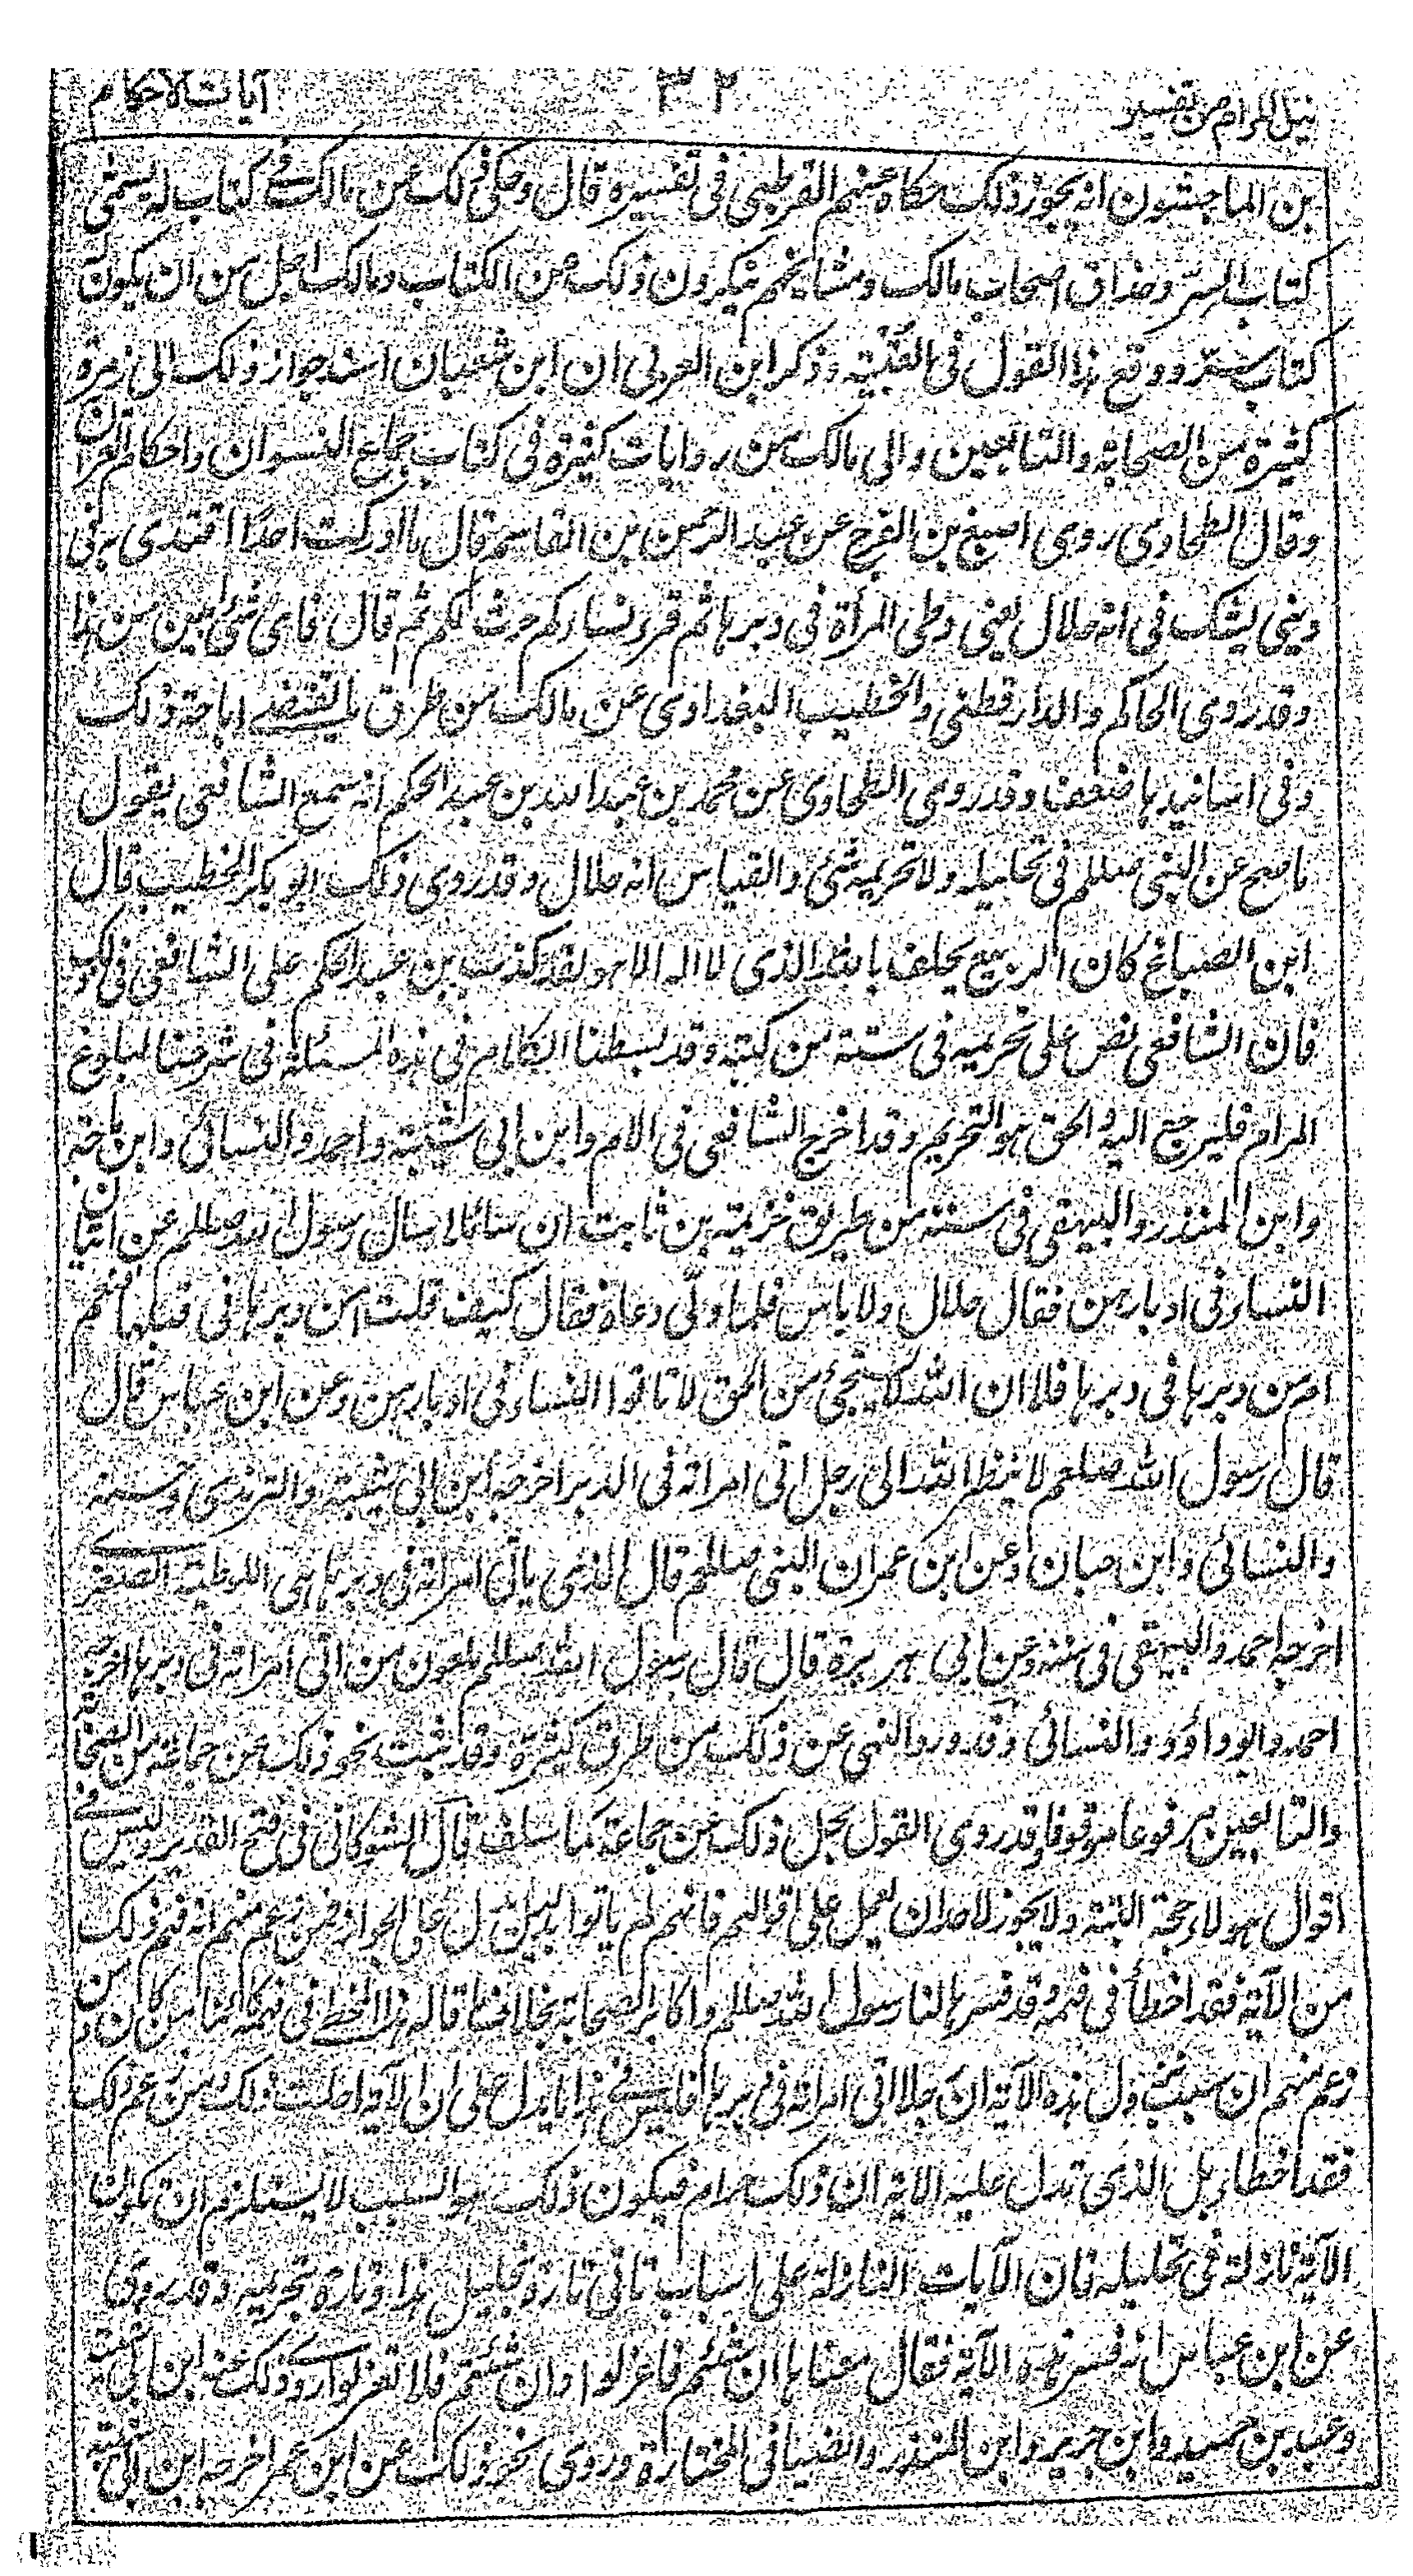 نيل المرام من تفسير ٣٢ آيات الاحكام
بن الماجشون انه يجوز ذلك حكاه عنهم القرطبي في تفسيره قال وحكي ذلك عن مالك في كتاب له يسمى
كتاب السر وحذاق اصحاب مالك ومشايخهم ينكرون ذلك من الكتاب ومالك اجل من ان يكون له
كتاب ستر ووقع هذا القول في العتبية وذكر ابن العربي ان ابن شعبان اسند جواز ذلك الى زمرة
كثيرة من الصحابة والتابعين والى مالك من روايات كثيرة في كتاب جماع النسوان واحكام القران
وقال الطحاوي روى اصبغ بن الفرج عن عبد الرحمن بن القاسم قال ما ادركت احدًا اقتدى به في
ديني يشك في انه حلال يعني وطي المرأة في دبرها ثم قرء نساءكم حرث لكم ثم قال فاي شئ ابين من هذا
وقد روى الحاكم والدارقطني والخطيب البغدادي عن مالك من طرق ما يقتضي اباحة ذلك
وفي اسانيدها ضعف وقد روى الطحاوي عن محمد بن عبد الله بن عبد الحكم انه سمع الشافعي يقول
ما صح عن النبي صلعم في تحليله ولا تحريمه شئ والقياس انه حلال وقد روى ذلك ابو بكر الخطيب قال
ابن الصباغ كان الربيع يحلف بالله الذي لا اله الا هو لقد كذب ابن عبد الحكم على الشافعي في ذلك
فان الشافعي نص على تحريمه في ستة من كتبه وقد بسطنا الكلام في هذه المسئلة في شرحنا لبلوغ
المرام فليرجع اليه والحق هو التحريم وقد اخرج الشافعي في الام وابن ابي شيبة واحمد والنسائي وابن ماجة
وابن المنذر والبيهقي في سننه من طريق خزيمة بن ثابت ان سائلا سال رسول الله صلعم عن اتيان
النساء في ادبارهن فقال حلال ولا باس فلما ولّى دعاه فقال كيف قلت امن دبرها في قبلها فنعم
ام من دبرها في دبرها فلا ان الله لا يستحيي من الحق لا تاتوا النساء في ادبارهن وعن ابن عباس قال
قال رسول الله صلعم لا ينظر الله الى رجل اتى امراته في الدبر اخرجه ابن ابي شيبة والترمذي وحسنه
والنسائي وابن حبان وعن ابن عمر ان النبي صلعم قال الذي ياتي امراته في دبرها هي اللوطية الصغرى
اخرجه احمد والبيهقي في سننه وعن ابي هريرة قال قال رسول الله صلعم ملعون من اتى امراته في دبرها اخرجه
احمد وابو داؤد والنسائي وقد ورد النهي عن ذلك من طرق كثيرة وقد ثبت نحو ذلك عن جماعة من الصحابة
والتابعين مرفوعا وموقوفا وقد روى القول بحل ذلك عن جماعة كما سلف قال الشوكاني في فتح القدير وليس في
اقوال هولاء حجة البتة ولا يجوز لاحد ان يعمل على اقوالهم فانهم لم ياتوا بدليل يدل على الجواز فمن زعم منهم انه فهم ذلك
من الآية فقد اخطأ في فهمه وقد فسرها لنا رسول الله صلعم واكابر الصحابة بخلاف ما قاله هذا المخطي في فهمه كائنا من كان ومن
زعم منهم ان سبب نزول هذه الآية ان رجلا اتى امراته في دبرها فليس في هذا ما يدل على ان الآية احلت ذلك ومن زعم ذلك
فقد اخطا بل الذي تدل عليه الاية ان ذلك حرام فيكون ذلك هو السبب لا يستلزم ان تكون
الآية نازلة في تحليله فان الآيات النازلة على اسباب تاتي تارة بتحليل هذا وتارة بتحريمه وقد روى
عن ابن عباس انه فسر هذه الآية فقال معناها ان شئتم فاعزلوا وان شئتم فلا تعزلوا روى ذلك عنه ابن ابي شيبة
وعبد بن حميد وابن جرير وابن المنذر والضيا في المختارة وروى نحو ذلك عن ابن عمر اخرجه ابن ابي شيبة